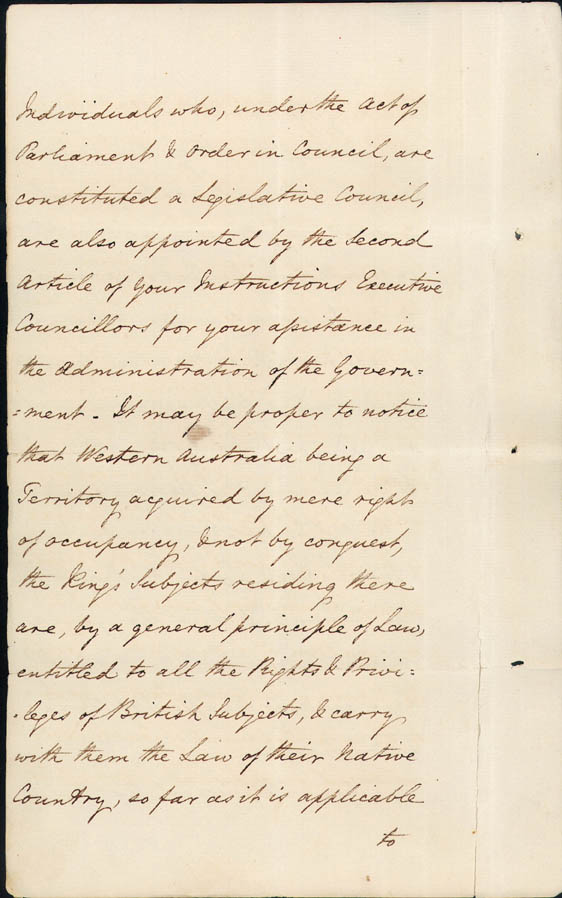 Individuals who, under the Act of
Parliament & Order in Council, are
constituted a Legislative Council,
are also appointed by the Second
Article of your Instructions Executive
Councillors for your assistance in
the Administration of the Govern=
=ment - It may be proper to notice
that Western Australia being a
Territory acquired by mere right
of occupancy, & not by conquest,
the King's Subjects residing there
are, by a general principle of Law,
entitled to all the Rights & Privi=
=leges of British Subjects, & carry
with them the Law of their Native
Country, so far as it is applicable
to